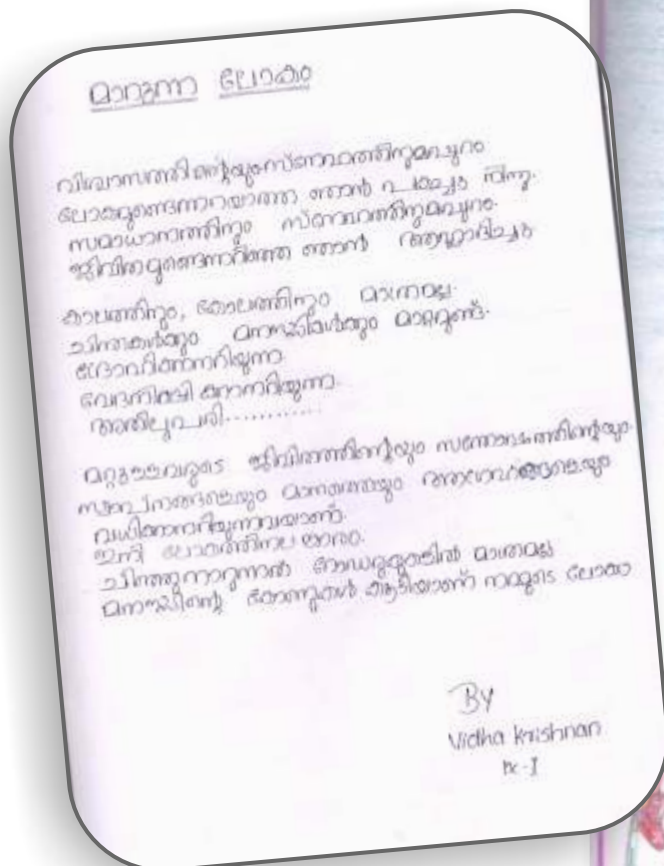 മാറുന്ന ലോകം
വിശ്വാസത്തിന്റെയും സ്നേഹത്തിനുമപ്പുറം
ലോകമുണ്ടെന്നറിയാത്ത ഞാൻ പകച്ചു നിന്നു.
സമാധാനത്തിനും സ്നേഹത്തിനുമപ്പുറം
ജീവിതമുണ്ടെന്നറിഞ്ഞ ഞാൻ
കാലത്തിനും, കോലത്തിനും മാത്രമല്ല.
ചിന്തകൾക്കും മനസ്സുകൾക്കും മാറ്റമുണ്ട്.
ദ്രോഹിക്കാനറിയുന്ന
വേദനിപ്പിക്കാനറിയുന്ന.
അതിലുപരി............
മറ്റുള്ളവരുടെ ജീവിതത്തിന്റെയും സന്തോഷത്തിന്റെയും
സ്വപ്നങ്ങളെയും
വധിക്കാനറിയുന്നവയാണ്.
ഇന്നീ
മാത്രമല്ല
മനസ്സിന്റെ കൂടിയാണ് നമ്മുടെ ലോകം
By
Vidha Krishnan
IX-I